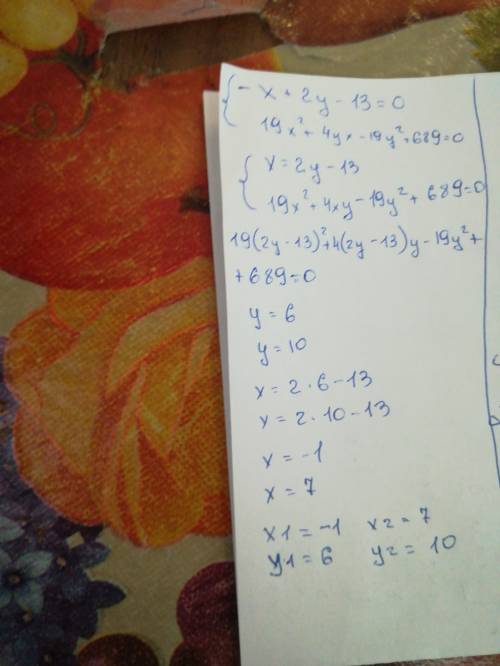 - x + 2y - 13 = 0
19x² + 4yx - 19y² + 689 = 0
x = 2y - 13
19x² + 4xy - 19y² + 689 = 0
19(2y - 13)² + 4(2y - 13)y - 19y² +
+ 689 = 0
y = 6
y = 10
x = 2 · 6 - 13
x = 2 · 10 - 13
x = -1
x = 7
x1 = -1 x2 = 7
y1 = 6 y2 = 10